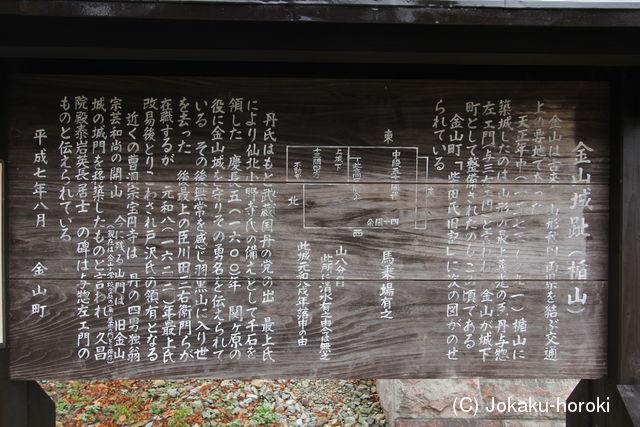 金山城趾（楯山）
金山は
山形
を結ぶ交通
天正年中（
一）楯山に
築城したのは山形の最上義光の
丹与惣
左エ門
金山が城下
町として整備されたのもこの頃である
金山町「柴田氏旧記」に次の図がのせ
られている
東
西
北
馬乗場有之
山八分目
此所に涓水有之由今は無之
此城元和八戌年落申の由
丹氏はもと武蔵国丹の党の出 最上氏
により仙北小野寺氏の備えとして千石を
領した 慶長五（一六〇〇）年 関ヶ原の
役に金山城を守りその勇名を伝えられて
いる その後無常を感じ羽黒山に入り世
を去った 後最上の臣川田二右衛門らが
在職するが 元和八（一六二二）年最上氏
改易後とりこわされ戸沢氏の領有となる
近くの曹洞宗宝円寺は 丹の四男独翁
宗芸和尚の開山 今に残る山門は 旧金山
城の城門を移築したものと言われ「久昌
院殿泰岩英長居士」の碑は与惣左エ門の
ものと伝えられている
平成七年八月 金山町
(C) Jokaku-horoki